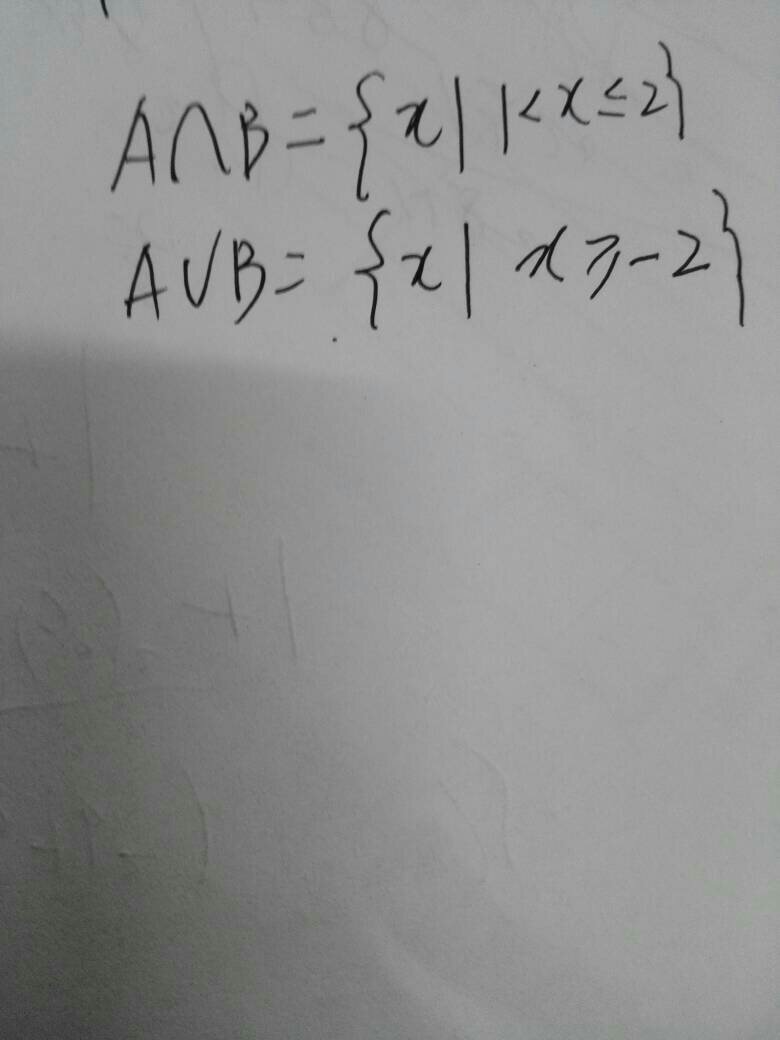 A∩B={x| 1<x≤2}
A∪B={x| x≥-2}